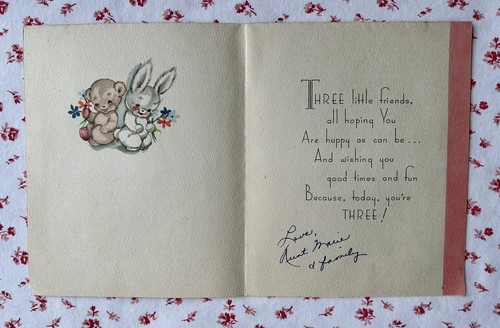 THREE little friends,
all hoping You
Are happy as can be...
And wishing you
good times and fun
Because, today, you're
THREE!
Love,
Aunt Marie
& family